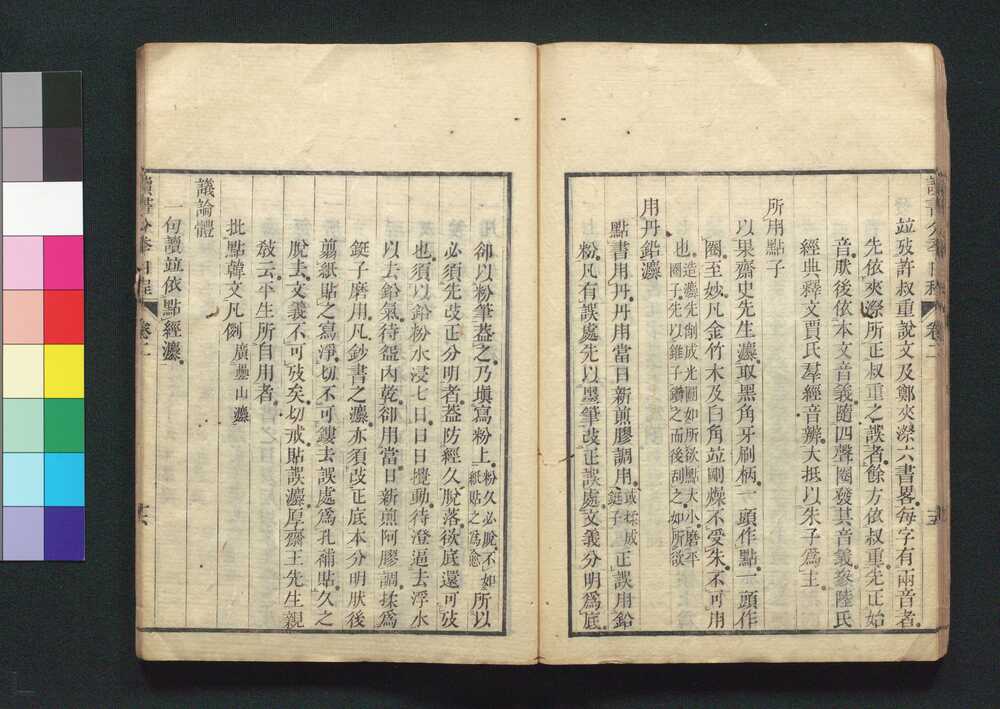 讀書分年日程 卷二
竝攷許叔重說文及鄭夾漈六書畧每字有兩音者
先依夾漈所正叔重之誤者餘方依叔重先正始
音肰後依本文音義隨四聲圈發其音義參陸氏
經典釋文賈氏羣經音辨大抵以朱子爲主
所用點子
以果齋史先生灋取黑角牙刷柄一頭作點一頭作
圈至妙凡金竹木及白角竝剛燥不受朱不可用
也造灋先削成光圜如所欲點大小磨平
圈子先以錐子鑽之而後刮之如所欲
用丹鉛灋
點書用丹丹用當日新煎膠調用或揉成
鋌子正誤用鉛
粉凡有誤處先以墨筆攺正誤處文義分明爲底
卻以粉筆葢之乃塡寫粉上粉久必脫不如
紙貼之爲愈所以
必須先攺正分明者葢防經久脫落欲底還可攷
也須以鉛粉水浸七日日日攪動待澄逼去浮水
以去鉛氣待盌內乾卻用當日新煎阿膠調揉爲
鋌子磨用凡鈔書之灋亦須攺正底本分明肰後
翦紙貼之寫淨切不可鏤去誤處爲孔補貼久之
脫去文義不可攷矣切戒貼誤灋厚齋王先生親
敎云平生所自用者
批點韓文凡例廣疊山灋
議論體
一句讀竝依點經灋
讀書分年日程 卷二